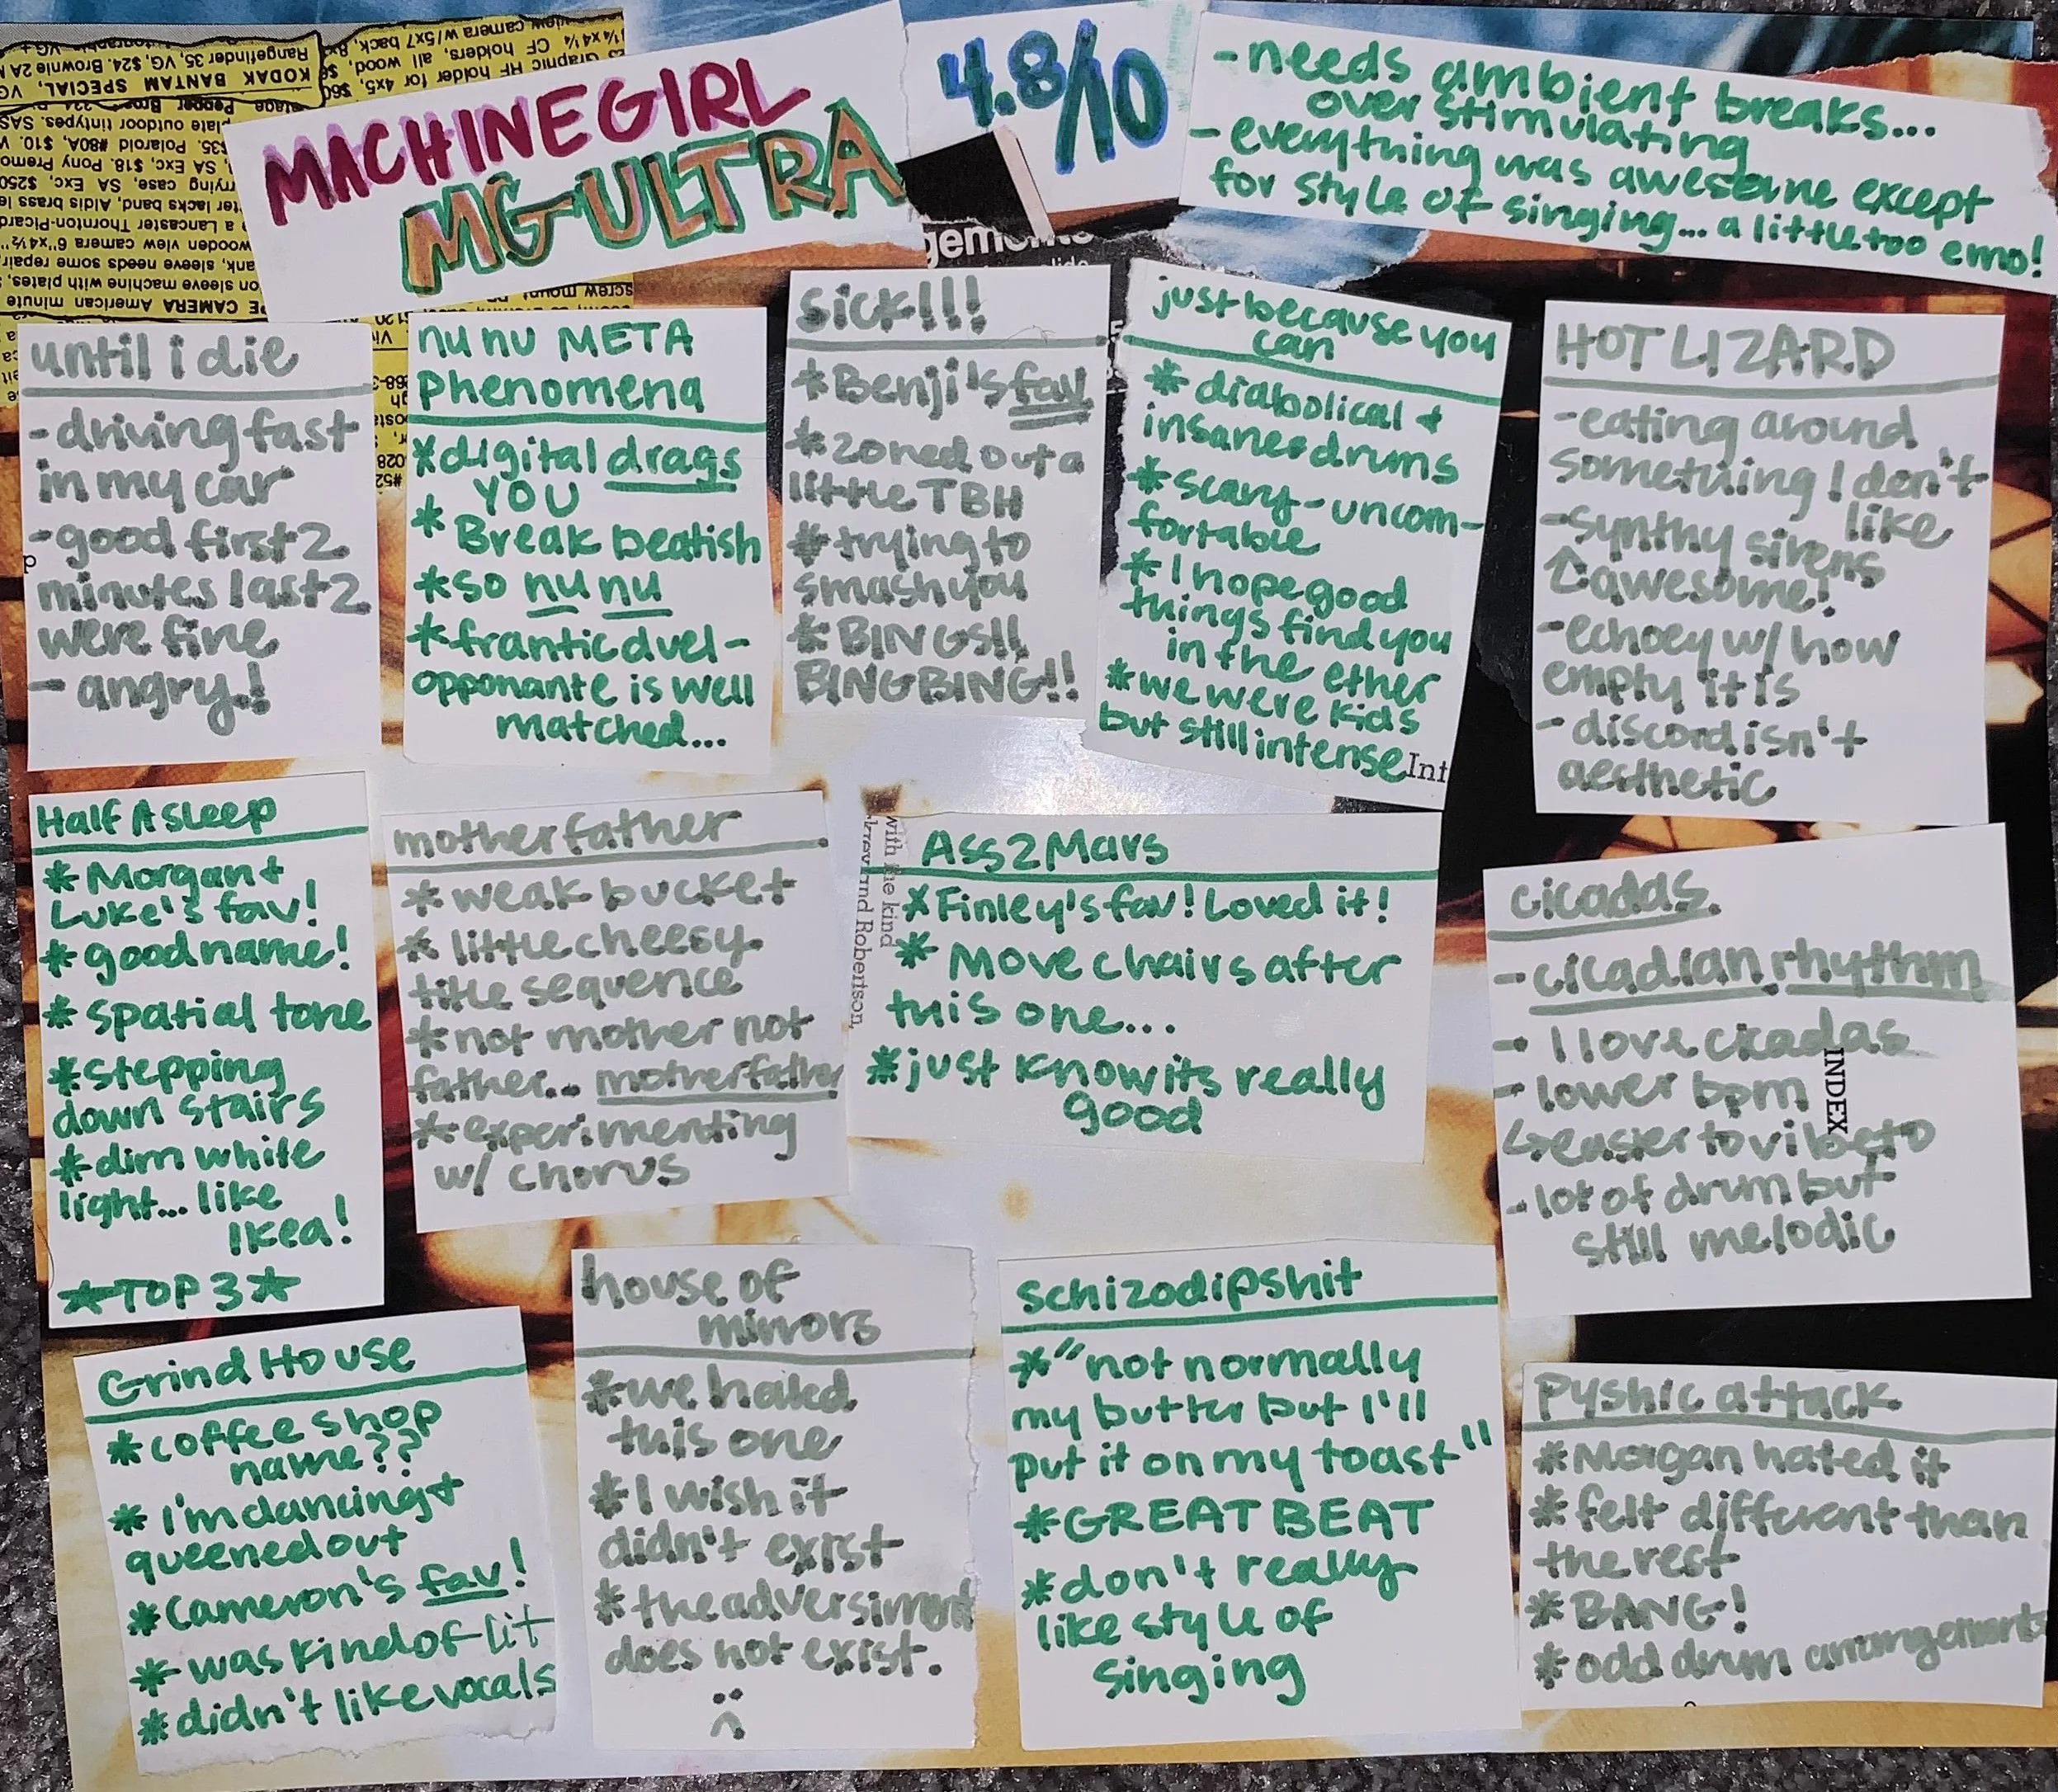 MACHINEGIRL
MG-ULTRA
4.8/10
-needs ambient breaks...
over stimulating
-everything was awesome except
for style of singing... a little too emo!
until i die
-driving fast
in my car
-good first 2
minutes last 2
were fine
- angry!
nu nu META
phenomena
*digital drags
YOU
* Break beatish
*so nu nu
*frantic duel-
opponante is well
matched...
sick!!!
*Benji's fav
*zoned out a
little TBH
*trying to
smash you
*BINGS!!
BINGBING!!
just because you
can
* diabolical +
insane drums
*scary-uncom-
fortable
*I hope good
things find you
in the ether
*we were kids
but still intense
Int
HOT LIZARD
-eating around
something I don't
like
-synthy sirens
↑awesome!
-echoey w/ how
empty it is
- discord isn't
aesthetic
Half Asleep
*Morgan +
Luke's fav!
*good name!
*spatial tone
*stepping
down stairs
*dim white
light... like
Ikea!
★TOP 3★
motherfather
*weak bucket
* little cheesy
title sequence
*not mother not
father... motherfather
*experimenting
w/ chorus
with the kind
and Robertson,
Ass2Mars
*Finley's fav! Loved it!
* Move chairs after
this one...
*just know its really
good
cicadas.
-cicadian rhythm
- I love cicadas
- lower bpm
↳easier to vibe to
- lot of drum but
still melodic
INDEX
Grind House
*coffee shop
name??
* I'm dancing +
queened out
*Cameron's fav!
* was kind of lit
*didn't like vocals
house of
mirrors
*we hated
this one
*I wish it
didn't exist
*the adversiment
does not exist.
Schizodipshit
*"not normally
my butter but I'll
put it on my toast"
*GREAT BEAT
*don't really
like style of
singing
Pyshic attack
*Morgan hated it
*felt different than
the rest
*BANG!
*odd drum arrangements
KODAK BANTAM SPECIAL,
Rangefinder 35, VG, $24. Brownie 2A